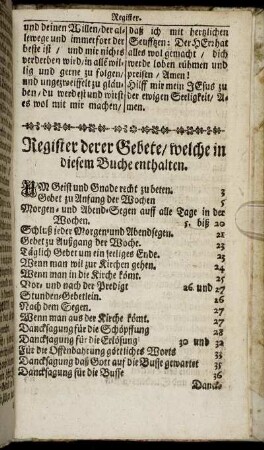 Register.
und deinen Willen, der al-
lewege und immerfort der
beste ist / und mir nichts
verderben wird / in all wil-
lig und gerne zu folgen /
und ungezweiffelt zu gläu-
ben / du werdest und wirst
es wol mit mir machen /
daß ich mit hertzlichen
Seufftzen: Der HErr hat
alles wol gemacht / dich
werde loben rühmen und
preisen / Amen!
Hilff mir mein JEsus zu
der ewigen Seligkeit / A-
men.
Register derer Gebete / welche in
diesem Buche enthalten.
UM Geist und Gnade recht zu beten. 3
Gebet zu Anfang der Wochen 5
Morgen- und Abend-Segen auff alle Tage in der
Wochen. 5. biß 20
Schluß jeder Morgen und Abendsegen. 21
Gebet zu Außgang der Woche. 23
Täglich Gebet um ein seeliges Ende. 23
Wenn man wil zur Kirchen gehen. 24
Wenn man in die Kirche kömt. 25
Vor- und nach der Predigt 26 und 27
Stunden-Gebetlein. 26
Nach dem Segen. 27
Wenn man aus der Kirche kömt. 27
Dancksagung für die Schöpffung 28
Dancksagung für die Erlösung 30 und 32
Für die Offenbahrung göttliches Worts 33
Dancksagung daß Gott auf die Busse gewartet 35
Dancksagung für die Busse 36
Danck-